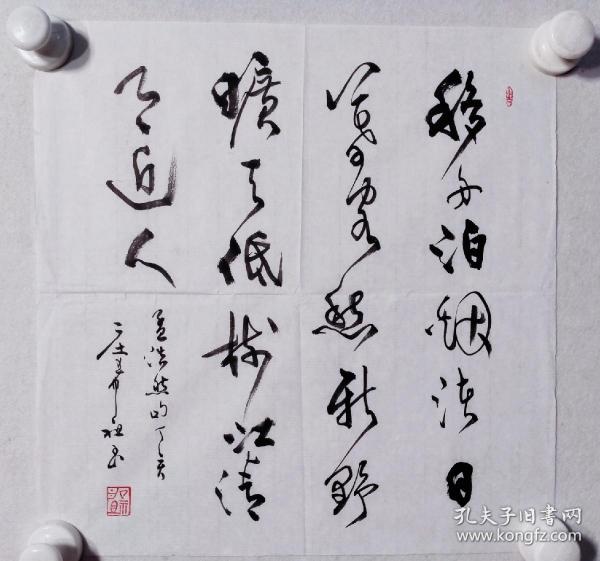 移舟泊烟渚日
暮客愁新野
曠天低树江清
月近人
孟浩然句丁亥
孔夫子旧书网
www.kongfz.com